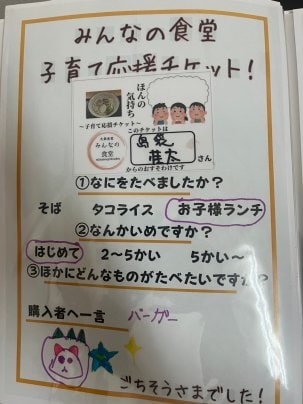 みんなの食堂
子育て応援チケット!
ほんの
気持ち
~子育て応援チケット~
このチケットは
みんなの
食堂
島袋
さん
からのおすそわけです
①なにをたべましたか?
そば タコライス お子様ランチ
②なんかいめですか?
はじめて 2~5かい 5かい~
③ほかにどんなものがたべたいですか?
購入者へ一言 バーガー
ごちそうさまでした!